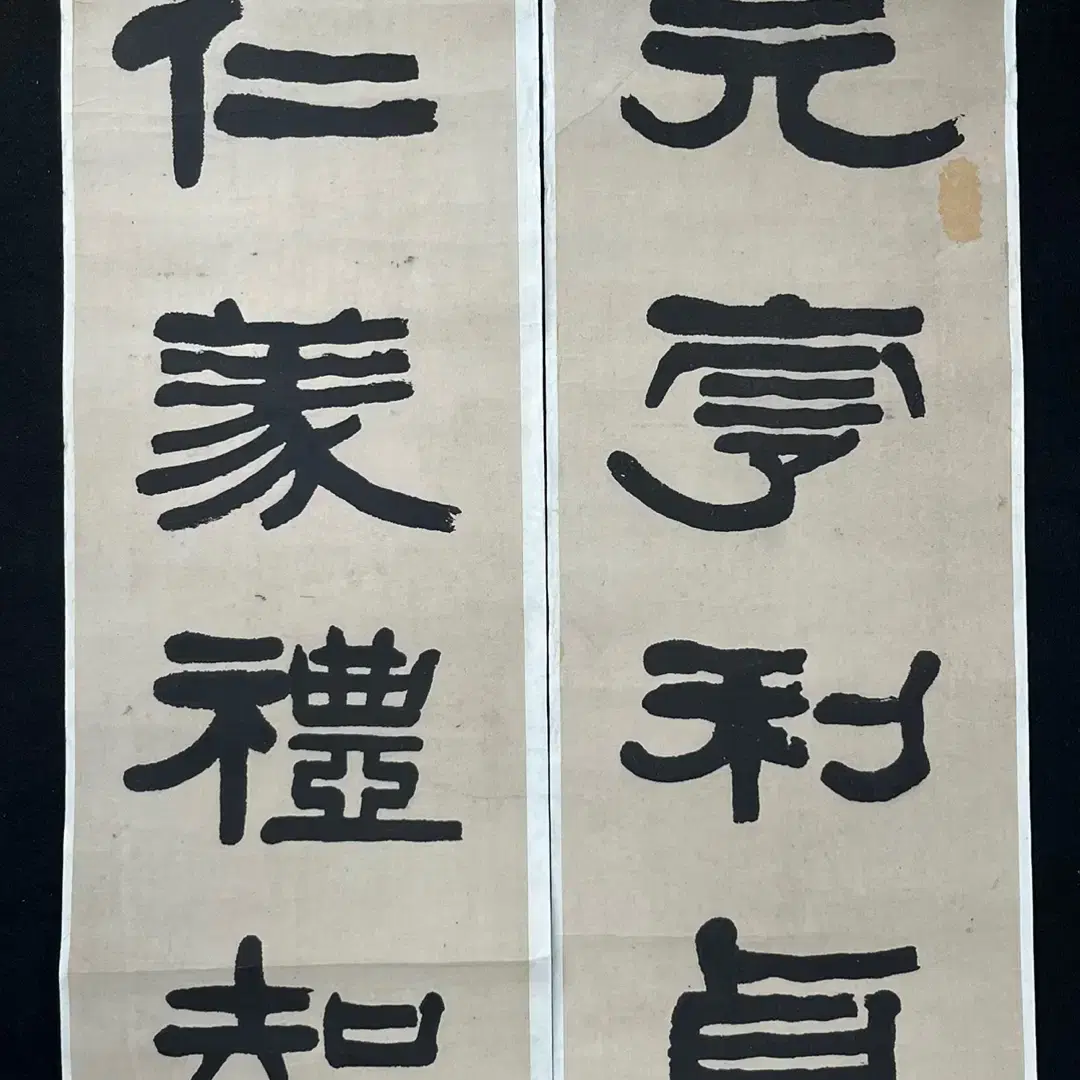 元亨利貞
仁義禮知